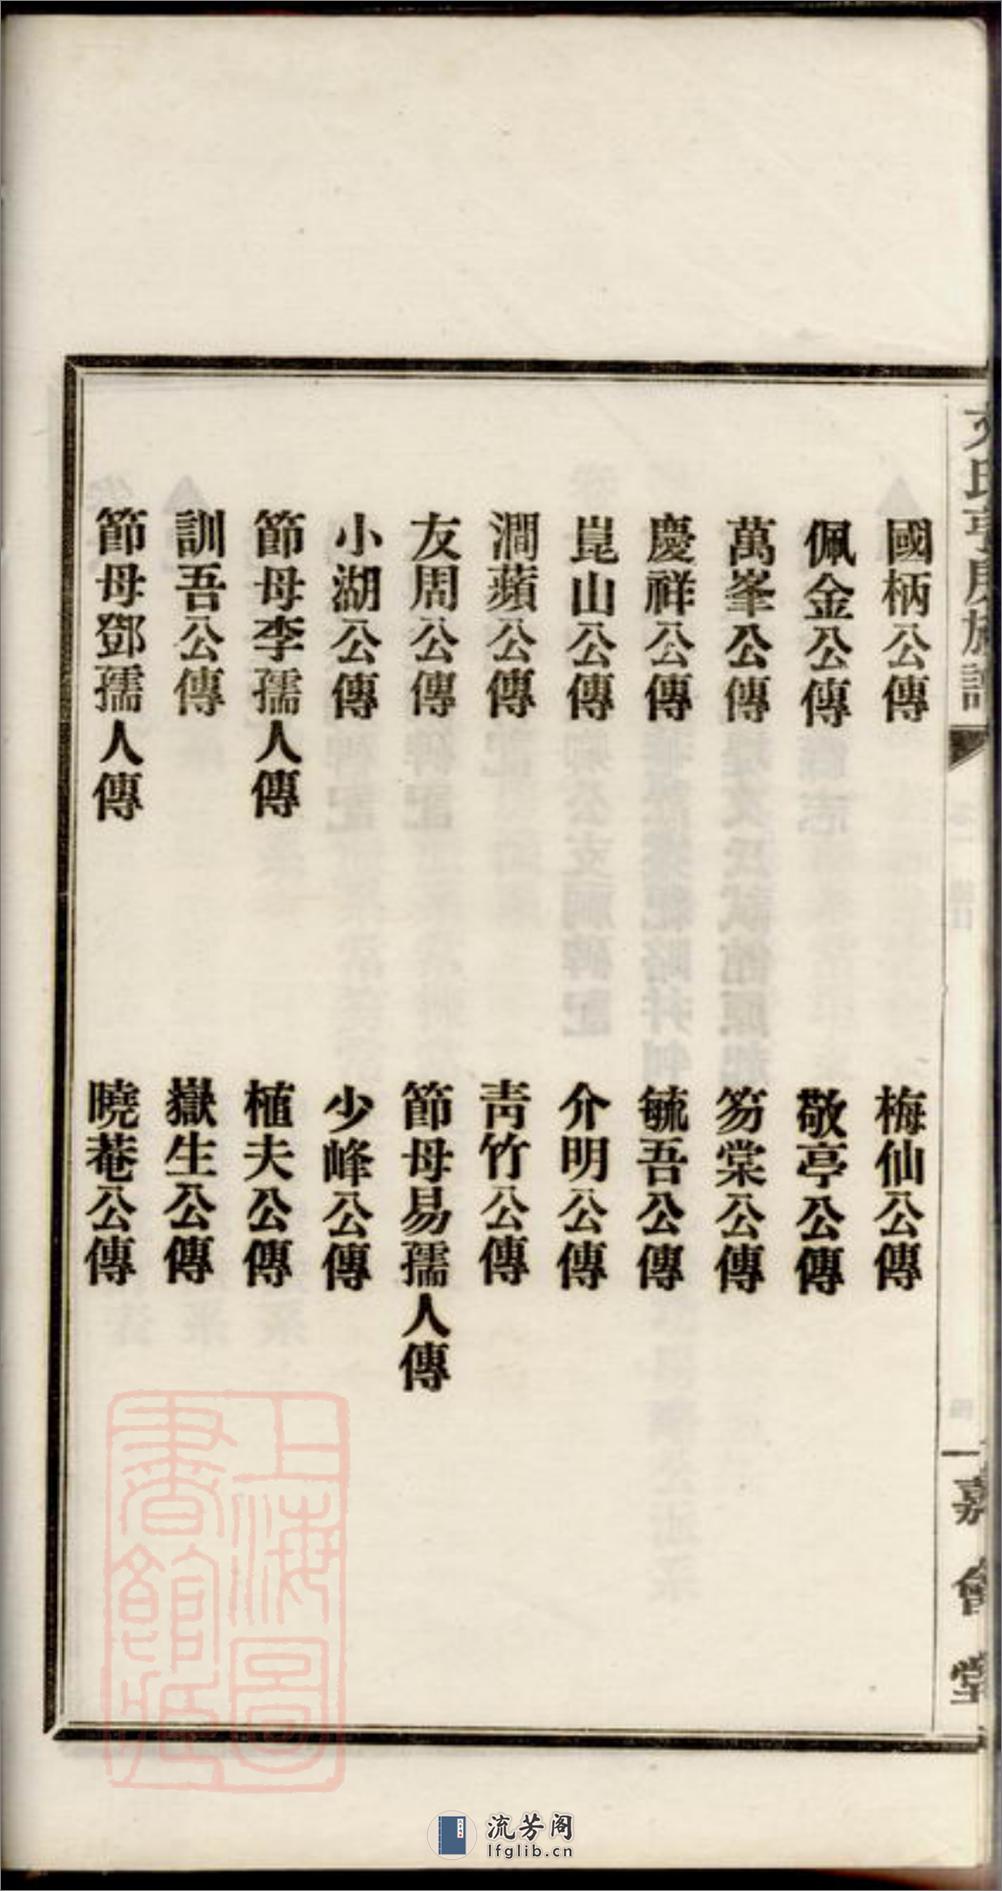 國柄公傳
梅仙公傳
佩金公傳
敬亭公傳
萬峯公傳
笏棠公傳
慶祥公傳
毓吾公傳
崑山公傳
介明公傳
澗蘋公傳
青竹公傳
友周公傳
節母易孺人傳
小湖公傳
少峰公傳
節母李孺人傳
植夫公傳
訓吾公傳
嶽生公傳
節母鄧孺人傳
曉菴公傳
氏
房族譜
一
嘉會堂
上海圖書館藏
流芳阁
lfglib.cn